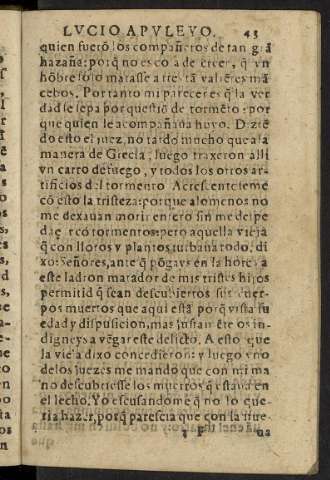 LVCIO APVLEYO. 43
quien fuerõ los compañeros de tan grã
hazaña: porq̃ no es cosa de creer, q̃ vn
hõbre solo matasse a tres tã valiẽtes mã
cebos. Por tanto mi parecer es q̃ la ver
dad se sepa por questiõ de tormẽto: por
que quien le acompañaua huyo. Diziẽ
do esto el juez, no tardo mucho que a la
manera de Grecia, luego traxeron alli
vn carro de fuego, y todos los otros ar-
tificios del tormento. Acrescenteseme
cõ esto la tristeza: porque alomenos no
me dexauan morir entero sin me despe
daçar cõ tormentos: pero aquella vieja
q̃ con lloros y plantos turbaua todo, di
xo: Señores, ante q̃ põgays en la horca a
este ladron matador de mis tristes hijos
permitid q̃ sean descubiertos sus cuer-
pos muertos que aqui està porq̃ vista su
edad y dispusicion, mas justamẽte os in-
digneys a vẽgar este delicto. A esto que
la vieja dixo concedieron: y luego vno
de los juezes me mando que con mi ma
no descubriesse los muertos q̃ estauã en
el lecho. Yo escusandome q̃ no lo que-
ria hazer, porq̃ parescia que con la nue-
F
ua